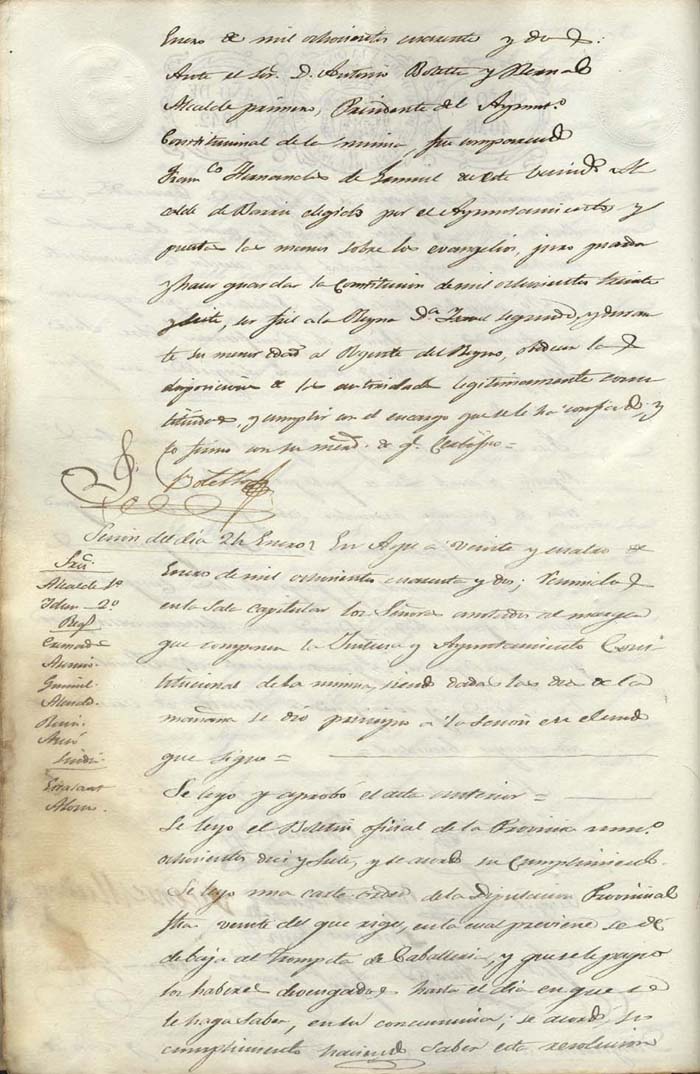 Enero de mil ochocientos cuarenta y dos:
Ante el Sor. D. Antonio Botella y
Alcalde primero, Presidente del Ayunto.
Constitucional de la misma, fue comparecido
Franco. Hernandez de Samuel de este
calde de Barrio elegido por el Ayuntamiento y
puestas las manos sobre los evangelios, juro guardar
y hacer guardar la Constitucion de mil ochocientos treinta
y siete, ser fiel a la Reyna Da. Isabel segunda, y duran
te su menor edad al Regente del Reyno, obedecer las
disposiciones de las autoridades legitimamente cons
tituidas, y cumplir con el encargo que se le ha confiado y
lo firmo con su merd. de q. Certifico =
Botella
Sesion del dia 24 Enero En a veinte y cuatro de
Enero de mil ochocientos cuarenta y dos; Reunidos
en la Sala Capitular los Señores anotados al margen
que componen la Justicia y Ayuntamiento Cons
titucional de la misma, siendo dadas las dies de la
mañana se dio principio a la sesion en el modo
que sigue =
Sres.
Alcalde 1o
Idem 2o
Regs.
Asensio
Se leyo y aprobó el acta anterior =
Se leyo el Boletin oficial de la Provincia numo.
ochocientos diez y siete, y se acordo su cumplimiento.
Se leyo una carta orden de la Diputacion Provincial
fha. veinte del que rige, en la cual previene se dé
de baja al trompeta de Caballeria, y que se le paguen
los haberes devengados hasta el dia en que se
le haga saber, en la concurrencia; se acordo su
cumplimiento haciendo saber esta resolucion